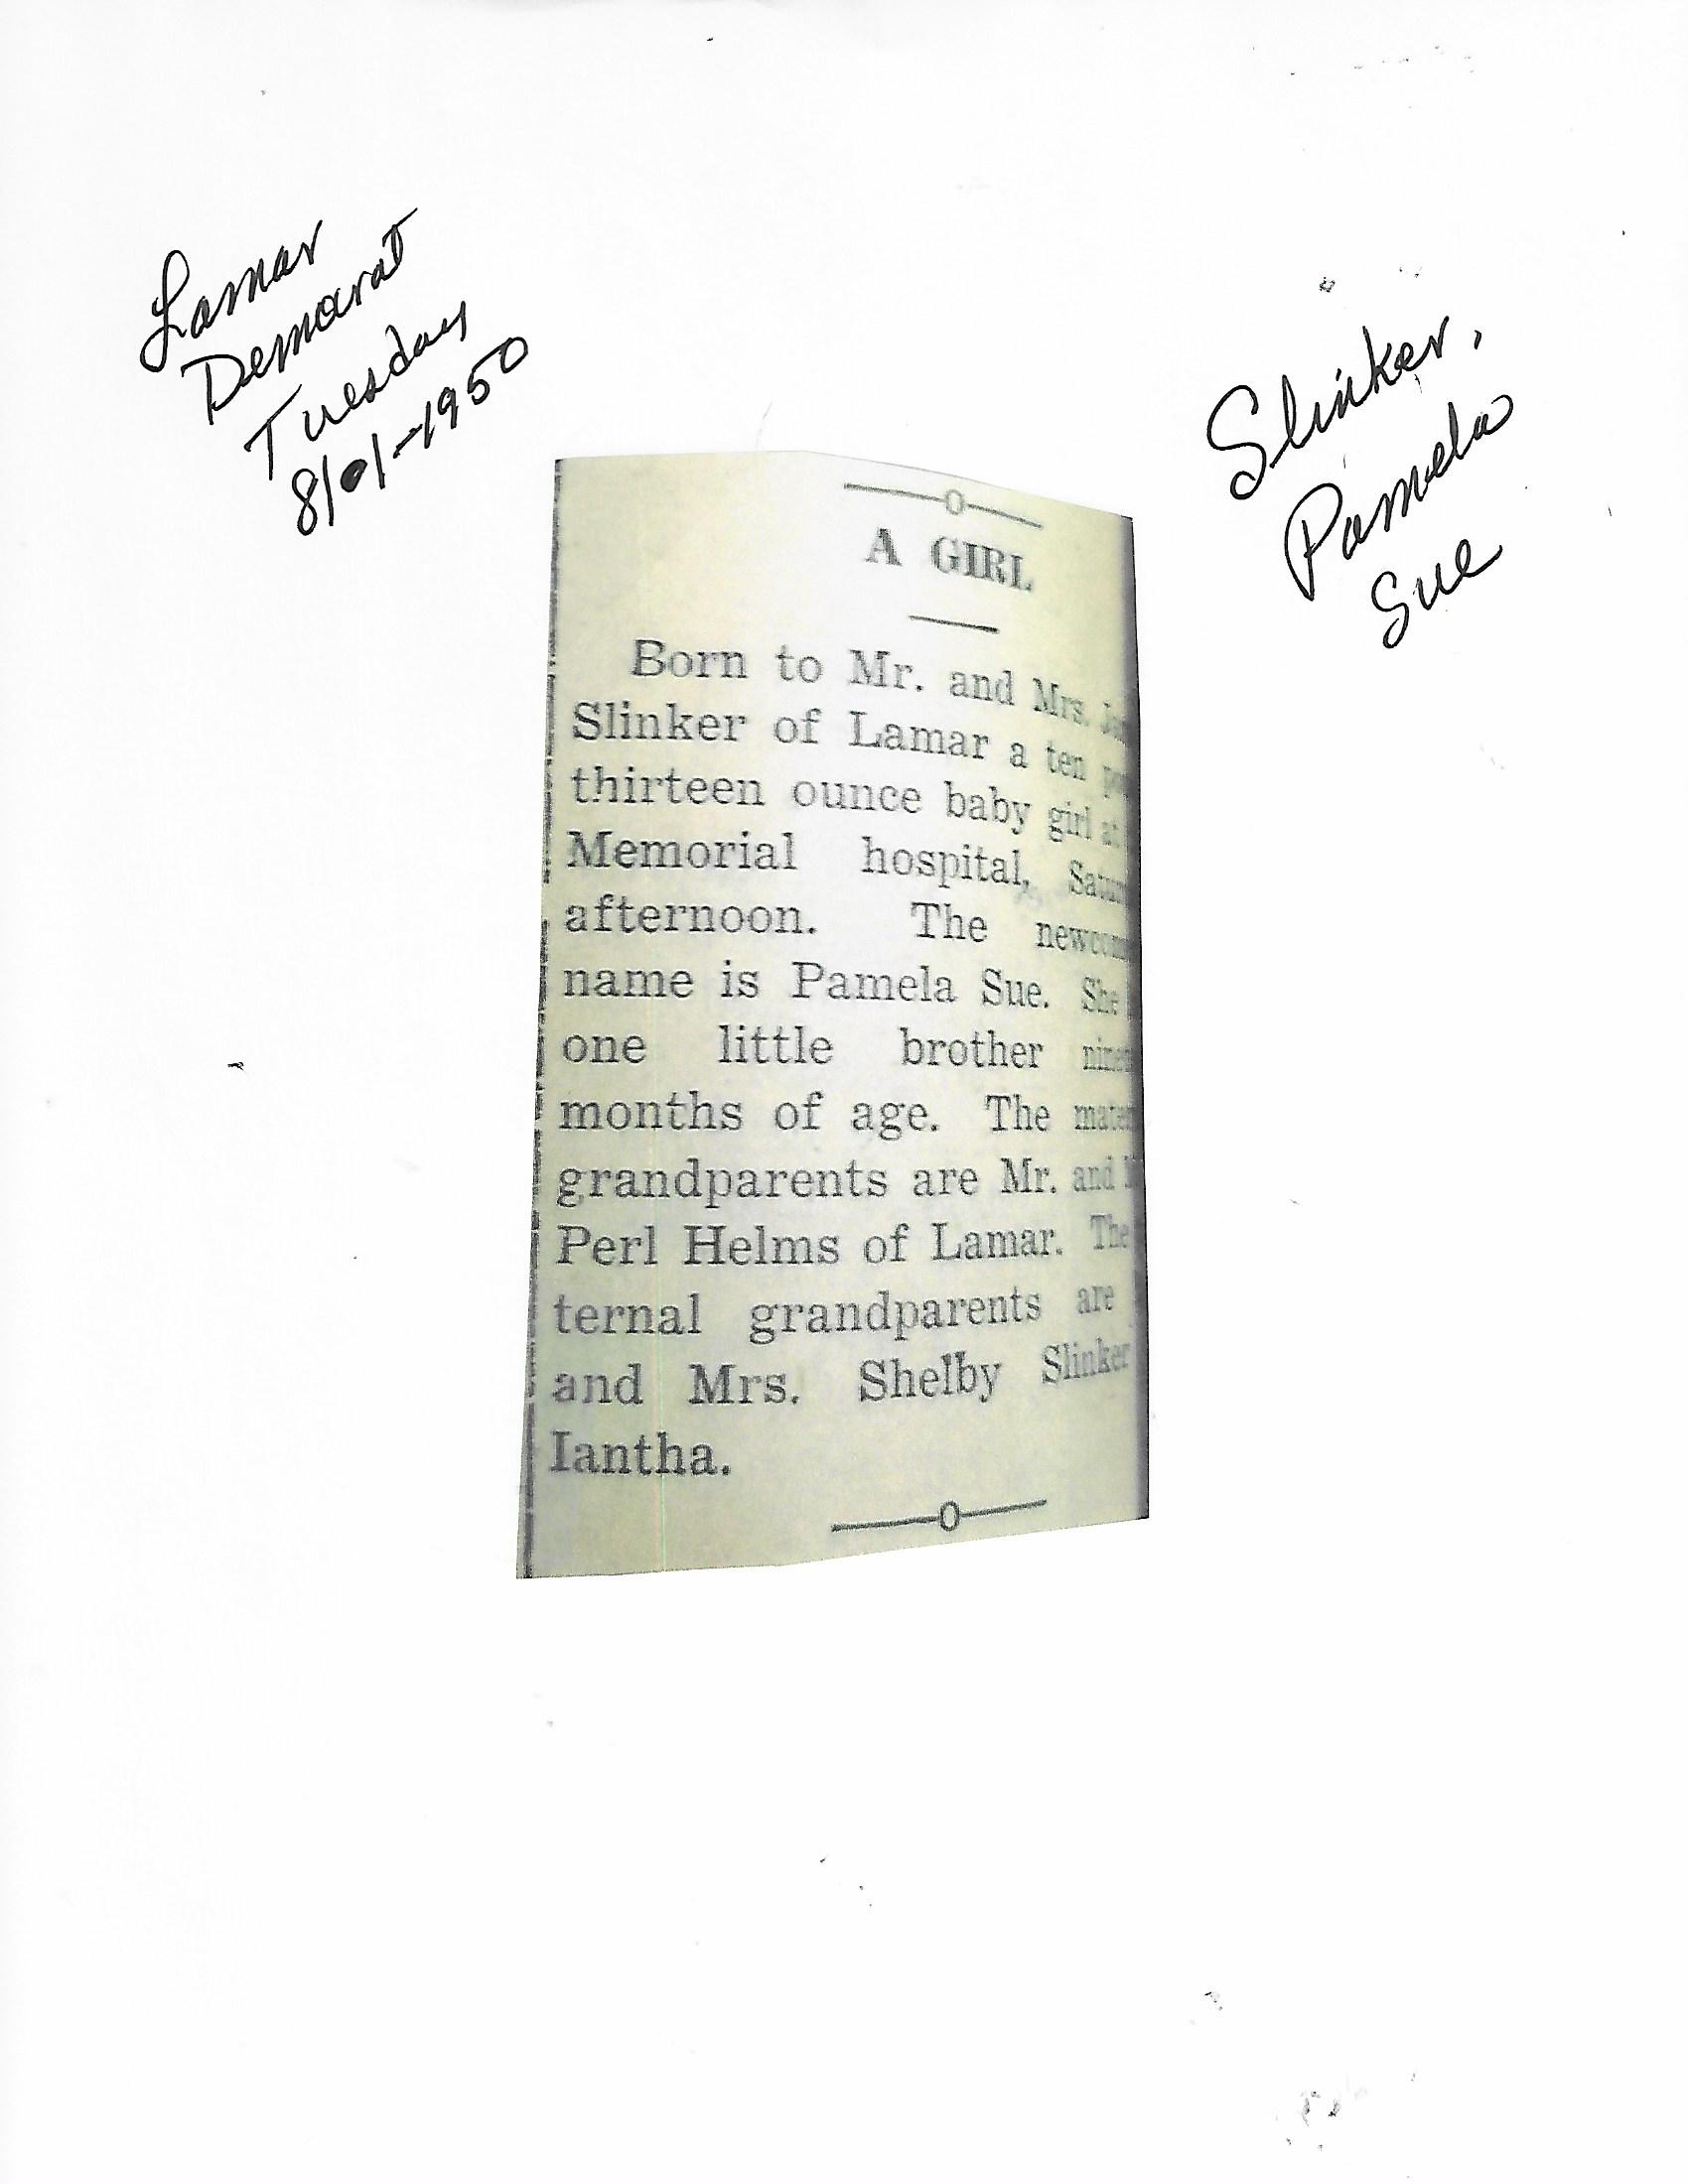 Lamar
Democrat
Tuesday
8/01-1950
Slinker,
Pamela
Sue
A GIRL
Born to Mr. and Mrs.
Slinker of Lamar a ten
thirteen ounce baby girl at
Memorial hospital,
afternoon. The
name is Pamela Sue. She
one little brother
months of age. The
grandparents are Mr. and
Perl Helms of Lamar. The
ternal grandparents are
and Mrs. Shelby Slinker
Iantha.